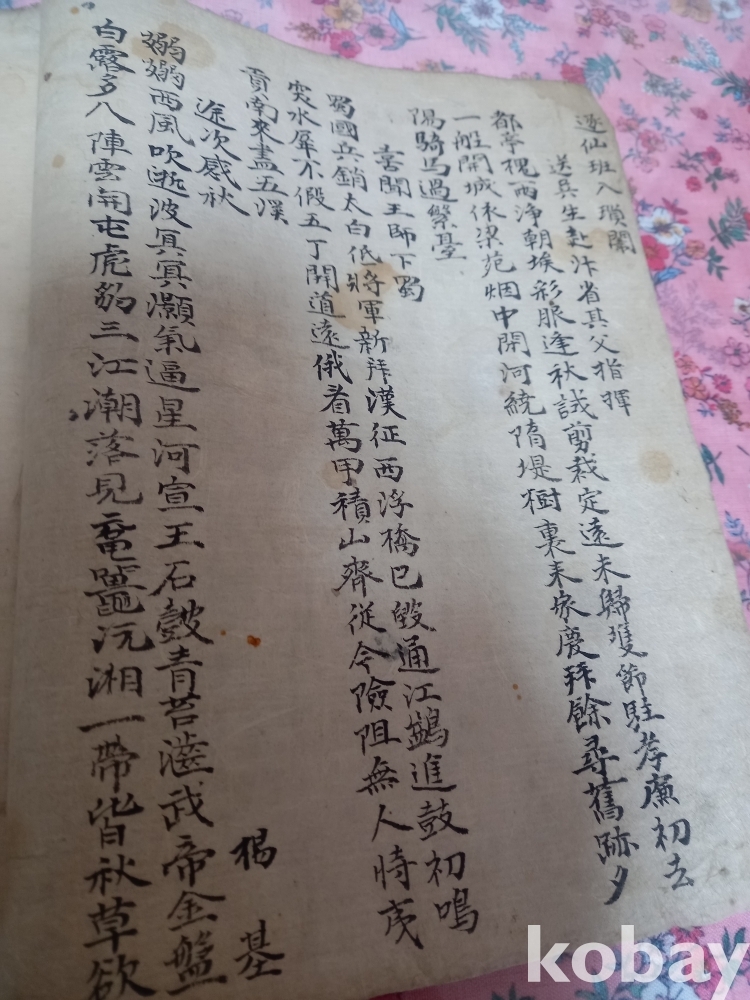 逐仙班入瑣闈
送兵生赴汴省其父指揮
都亭槐西淨朝埃彩服逢秋試剪裁定遠未歸雙節駐孝廉初去
一艇開城依梁苑烟中開河繞隋堤樹裏来家慶拜餘尋舊跡夕
陽騎馬過繁臺
喜聞王師下蜀
蜀國兵銷太白低將軍新拜漢征西浮橋已毀通江鷁進鼓初鳴
突水犀不假五丁開道遠俄看萬甲積山齊從今險阻無人恃戎
貢南来盡五溪
途次感秋
楊基
嫋嫋西風吹逝波冥冥灝氣逼星河宣王石鼓青苔澁武帝金盤
白露多八陣雲開屯虎豹三江潮落見黿鼉沅湘一帶皆秋草欲
kobay